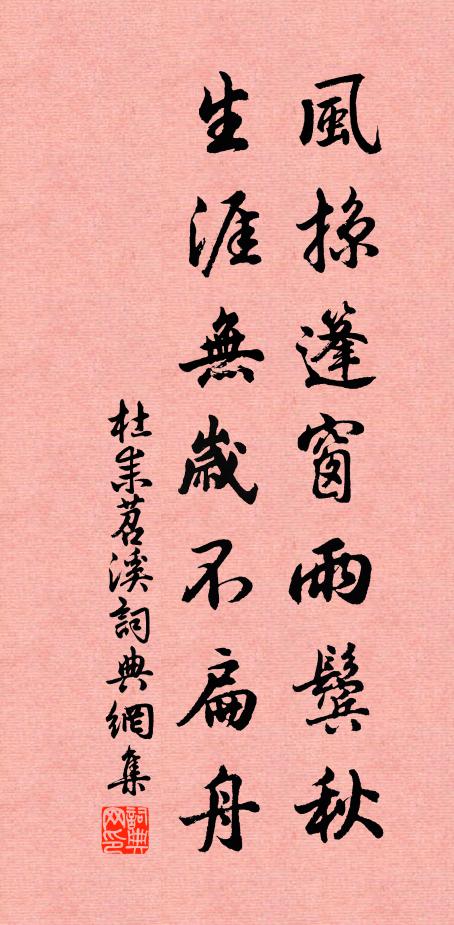 風掠蓬窗兩鬢秋
生涯無歲不扁舟
杜耒苕溪詞典網集
詞典网印